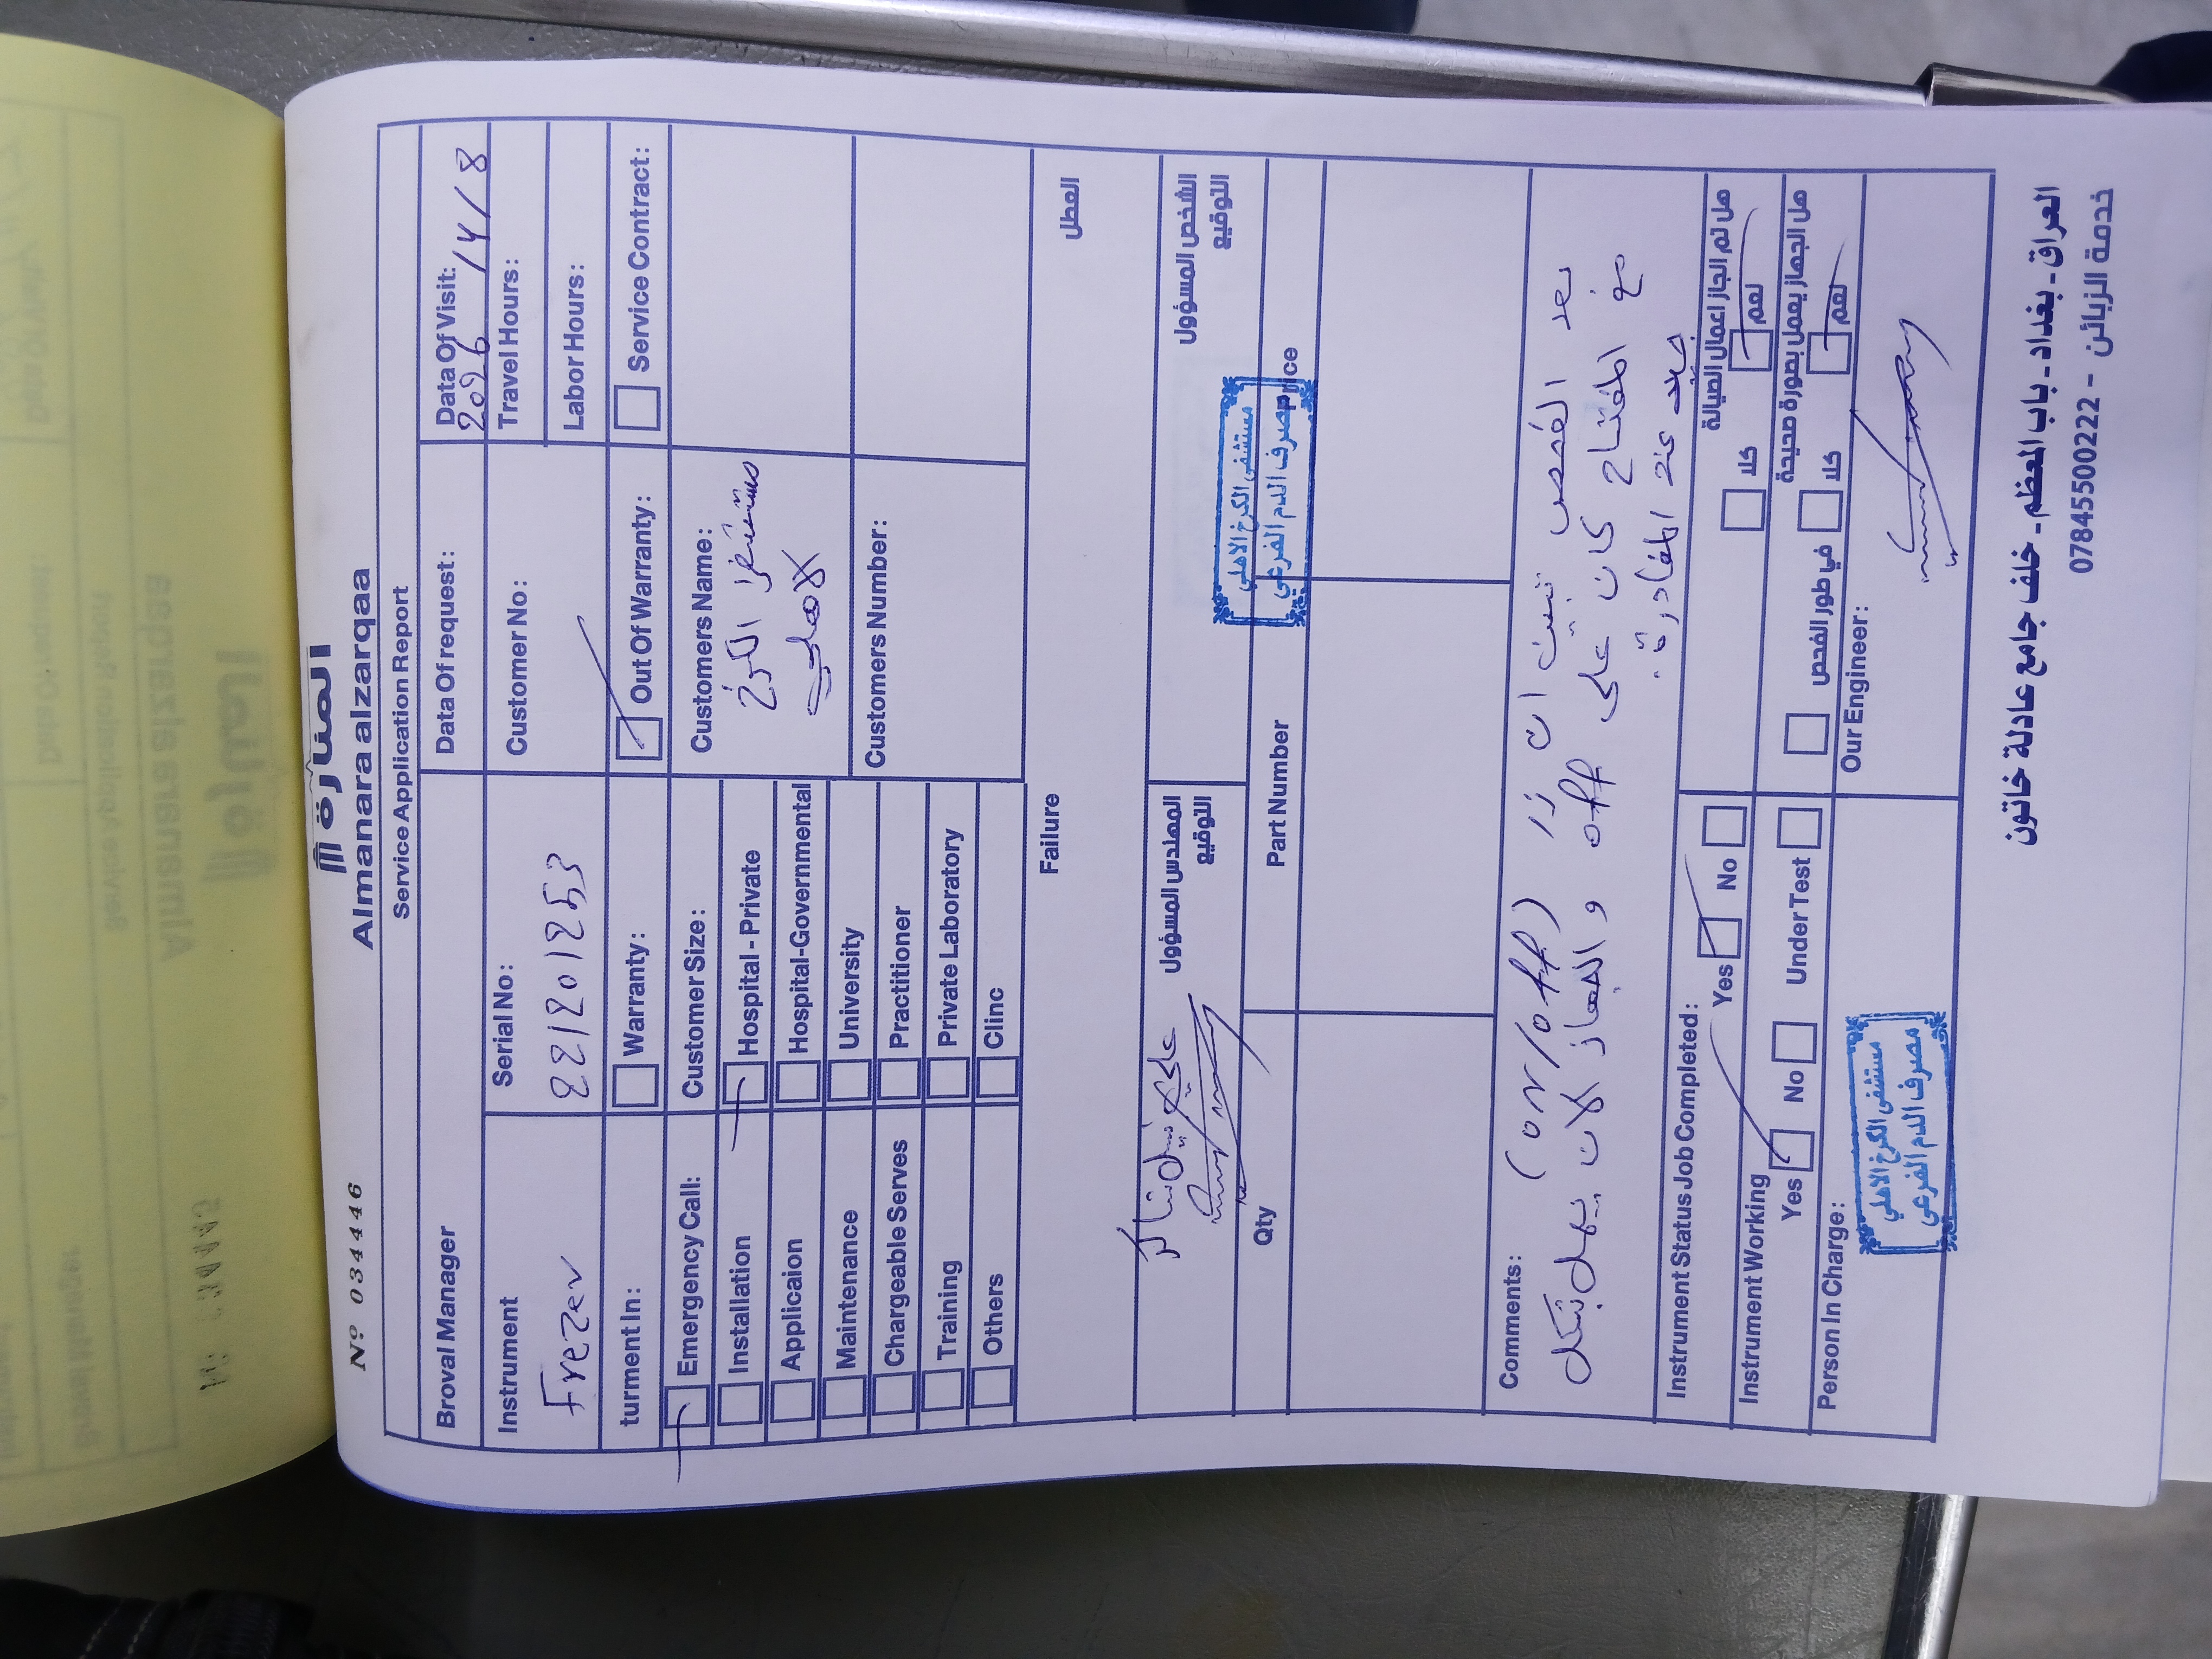 المنارة
Nº 034446
Almanara alzarqaa
Service Application Report
Broval Manager
Data Of request:
Data Of Visit:
2026 / 4 / 8
Instrument
Frezer
Serial No:
221201253
Customer No:
Travel Hours:
Labor Hours:
turment In:
Warranty:
Out Of Warranty:
Service Contract:
Emergency Call:
Customer Size:
Customers Name:
مستشفى الكرخ
الاهلي
Installation
Hospital - Private
Applicaion
Hospital-Governmental
Maintenance
University
Customers Number:
Chargeable Serves
Practitioner
Training
Private Laboratory
Others
Clinc
Failure
العطل
المهندس المسؤول
التوقيع
علي
الشخص المسؤول
التوقيع
مستشفى الكرخ الاهلي
مصرف الدم الفرعي
Qty
Part Number
Price
Comments:
بعد الفحص تبين ان زر (on/off)
من المفتاح كان على off و الجهاز الان يعمل بشكل
جيد عند المغادرة.
Instrument Status Job Completed:
Yes
No
هل تم انجاز اعمال الصيانة
نعم
كلا
Instrument Working
Yes
No
Under Test
هل الجهاز يعمل بصورة صحيحة
نعم
كلا
في طور الفحص
Person In Charge:
مستشفى الكرخ الاهلي
مصرف الدم الفرعي
Our Engineer:
العراق - بغداد - باب المعظم - خلف جامع عادلة خاتون
خدمة الزبائن - 07845500222